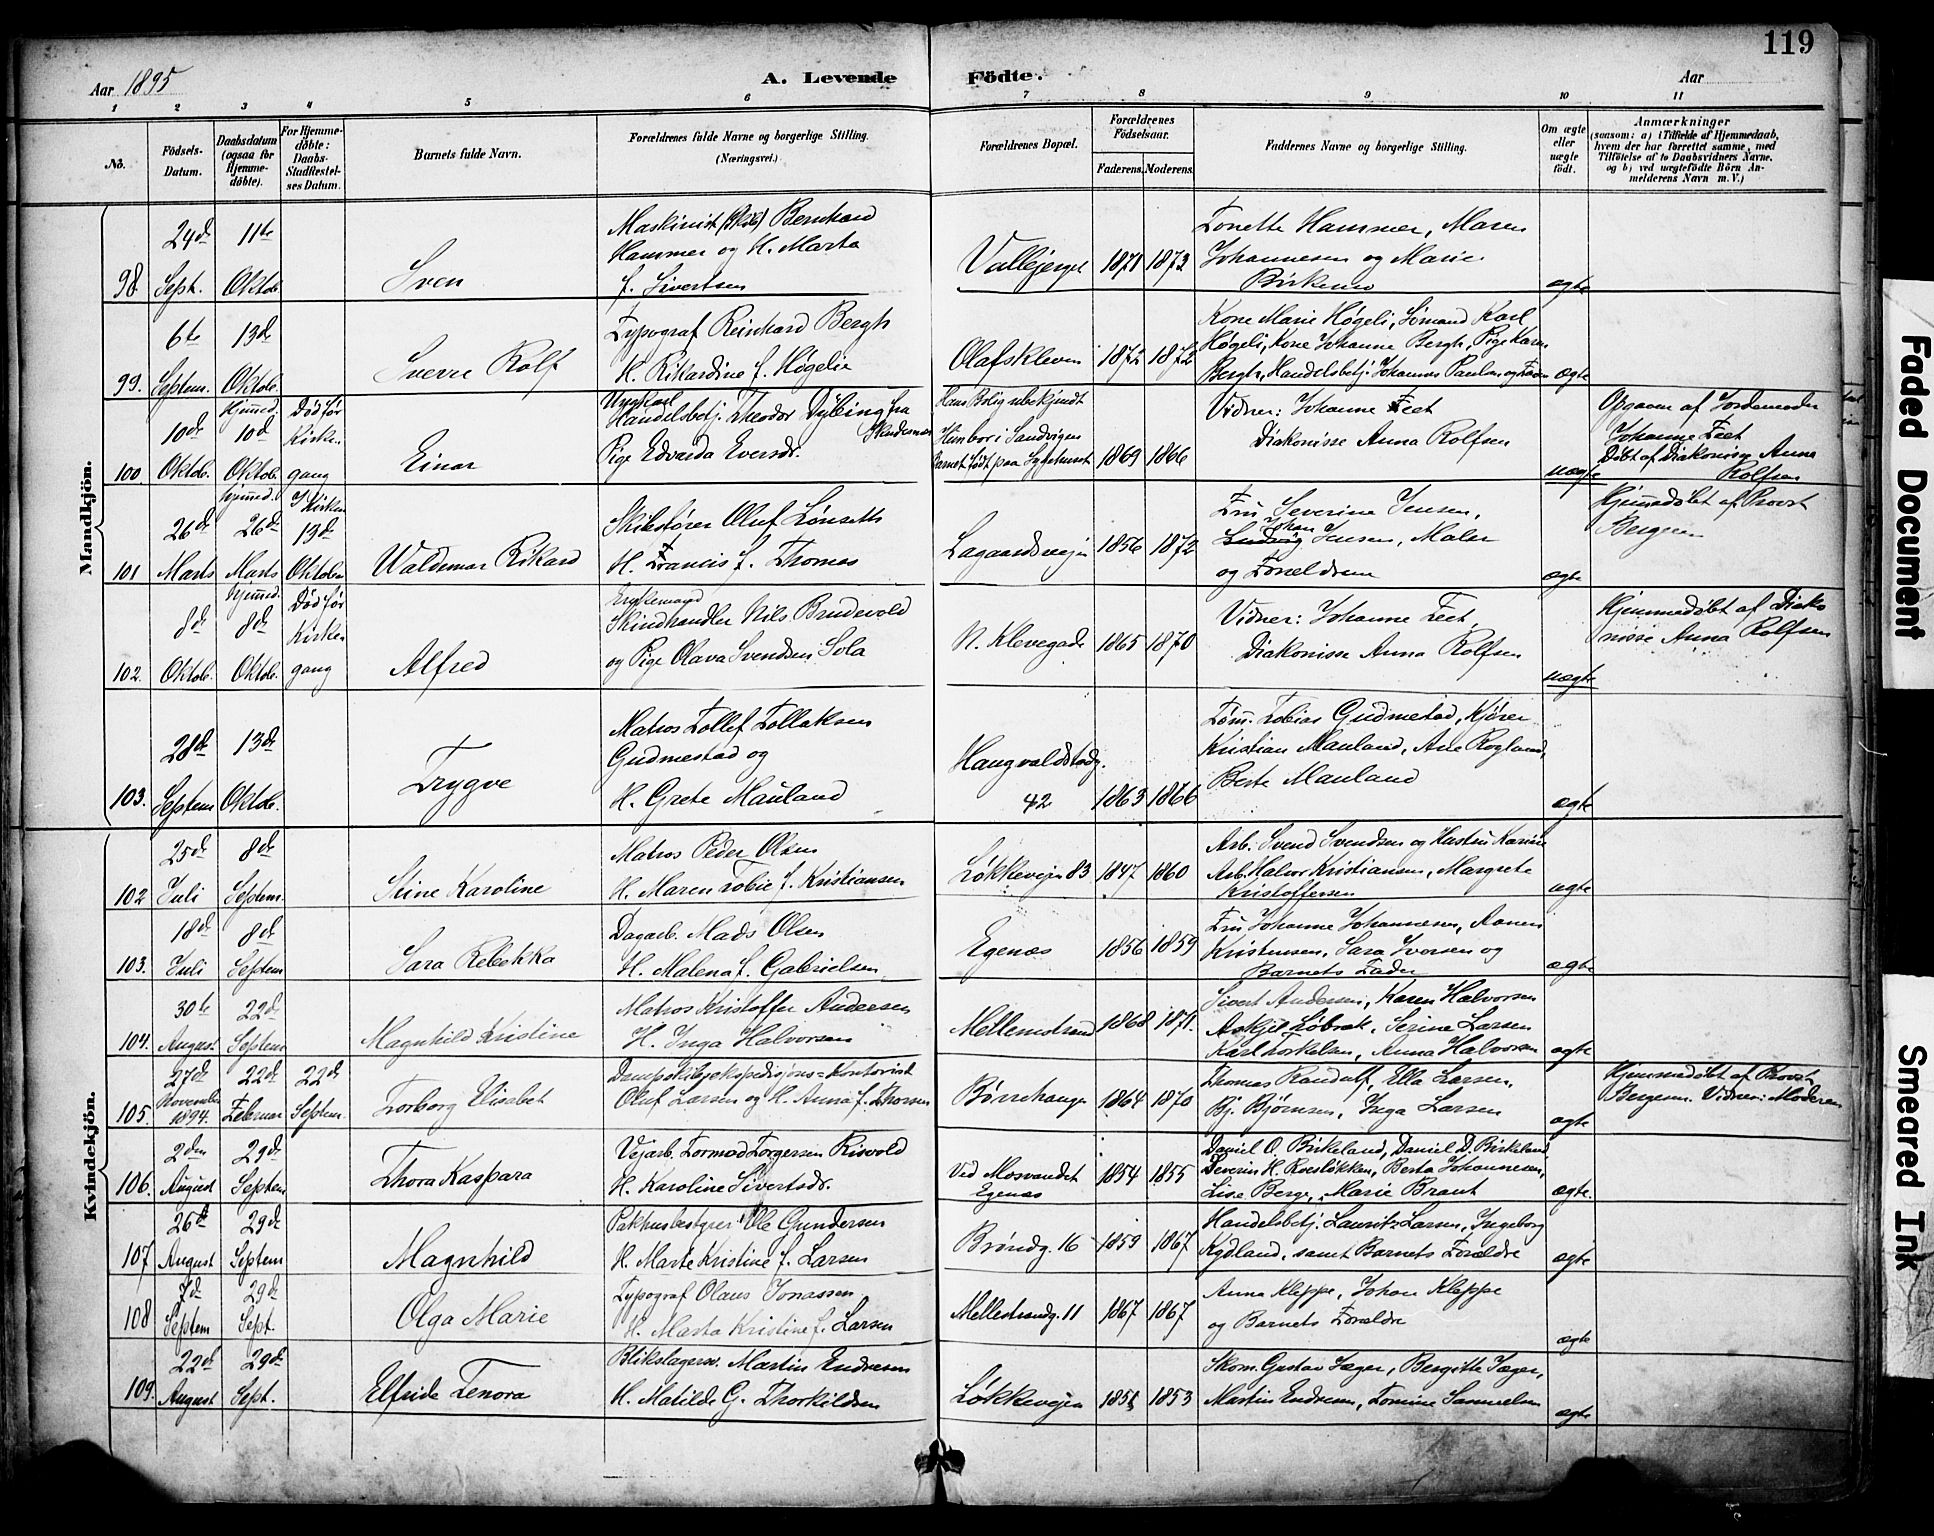 119
Aar 1895
A. Levende Födte.
Aar
1 2 3 4 5 6 7 8 9 10 11
No.
Födsels-Datum.
Daabsdatum (ogsaa for Hjemme-døbte).
For Hjemme-døbte: Daabs-Stadfæstelses Datum.
Barnets fulde Navn.
Forældrenes fulde Navne og borgerlige Stilling. (Næringsvei.)
Forældrenes Bopæl.
Forældrenes Födselsaar.
Faderens. Moderens.
Faddernes Navne og borgerlige Stilling.
Om ægte eller uægte født.
Anmærkninger
(saasom: a) i Tilfælde af Hjemmedaab, hvem der har forrettet samme, med Tilføielse af to Daabsvidners Navne, og b) ved uægtefødte Börn Anmelderens Navn m. V.)
Mandkjön.
98. 24de Sept. 11te Oktob. Sven
Maskinist Bernhard
Hammer og H. Marta
f. Sivertsen
1871 1873
Tonette Hammer, Maren
Johannesen og Marie
ægte
99. 6te Septem. 13de Oktob. Sverre Rolf
Typograf Reinhard Bergh
H. Rikardine f. Høgelie
Olafskleven 1872 1872
Kone Marie Høgeli, Sømand Karl
Høgeli, Kone Johanne Bergh, Pige Karen
Bergh, Handelsbetj. Johannes Paulsen og Faren
ægte
100. 10de Oktob. Hjemmed. 10de Oktob. Død før Kirkegang Einar
Ungkarl
Handelsbetj. Theodor Dybing fra Skudesnes
Pige Edvarda Eversdr.
Hans Bolig ubekjendt
Hun bor i Sandvigen
Barnet født paa Sygehuset
1869 1866
Vidner: Johanne Feet
Diakonisse Anna Rolfsen
uægte
Opgaven af Jordemoder
Johanne Feet
Døbt af Diakonisse Anna
Rolfsen
101 26de Marts Hjemmed. 26de Marts I Kirken 13de Oktober Waldemar Rikard
Skibsfører Oluf Lønseth
H. Francis f. Thomas
Lagaardsvejen 1856 1872
Fru Severine Jensen,
Johan
Ludvig Jensen, Maler
og Forældrene
ægte
Hjemmedøbt af Provst
Bergesen
102. 8de Oktob. Hjemmed. 8de Oktob. Død før Kirkegang Alfred
Enkemand
Skindhandler Nils Brudevold
og Pige Olava Svendsen Sola
N. Klevegade 1865 1870
Vidner: Johanne Feet,
Diakonisse Anna Rolfsen
uægte
Hjemmedøbt af Diako
nisse Anna Rolfsen
103. 28de Septem 13de Oktob. Trygve
Matros Tollef Tollaksen
Gudmestad og
H. Grete Mauland
Haugvaldstadg.
42 1863 1866
Tøm. Tobias Gudmestad, Kjører
Kristian Mauland, Ane Rogland,
Berte Mauland
ægte
Kvindekjön.
102 25de Juli 8de Septem. Stine Karoline
Matros Peder Olsen
H. Maren Tobie f. Kristiansen
Løkkevejen 83 1847 1860
Arb. Svend Svendsen og Hustru Karine
Arb. Halvor Kristiansen, Margrete
Kristoffersen
ægte
103. 18de Juli 8de Septem Sara Rebekka
Dagarb. Mads Olsen
H. Malena f. Gabrielsen
Egenæs 1856 1859
Fru Johanne Johannesen,
Kristensen, Sara Iversen og
Barnets Fader
ægte
104. 30te August 22de Septem Magnhild Kristine
Matros Kristoffer Andersen
H. Inga Halvorsen
Mellemstrand 1868 1871.
Sivert Andersen, Karen Halvorsen
Askjel Løbrak, Serine Larsen
Karl Torkelsen, Anna Halvorsen
ægte
105. 27de November 1894. 22de Februar 22de Septem. Torborg Elisabet
Dampskibsekspedisjons=Kontorist
Oluf Larsen og H. Anna f. Thorsen
Børrehaugen 1864 1870
Thomas Randulf, Ella Larsen,
Bj. Bjørnsen, Inga Larsen
ægte
Hjemmedøbt af Provst
Bergesen. Vidner: Moderen
106. 2den August 29de Septem Thora Kaspara
Vejarb. Tormod Torgersen Risvold
H. Karoline Sivertsdr.
Ved Mosvandet
Egenæs 1854 1855
Daniel O. Birkeland, Daniel D. Birkeland
Severin H. Rossløkken, Berta Johannesen,
Lise Berge, Marie Braut
ægte
107 26de August 29de Septem Magnhild
Pakhusbestyrer Ole Gundersen
H. Marte Kristine f. Larsen
Brøndg. 16 1859 1867
Handelsbetj. Lauritz Larsen, Ingeborg
Kydland, samt Barnets Forældre
ægte
108 7de Septem 29de Sept. Olga Marie
Typograf Olaus Jonassen
H. Marta Kristine f. Larsen
Mellestrandg. 11 1867 1867
Anna Kleppe, Johan Kleppe
og Barnets Forældre
ægte
109. 22de August 29de Sept. Elfride Tenora
Blikslagersv. Martin Endresen
H. Matilde G. Thorkildsen
Løkkevejen 1853
Skom. Gustav Sæger, Bergitte Sæger,
Martin Endresen, Tomine Samuelsen
ægte
Faded Document
Smeared Ink